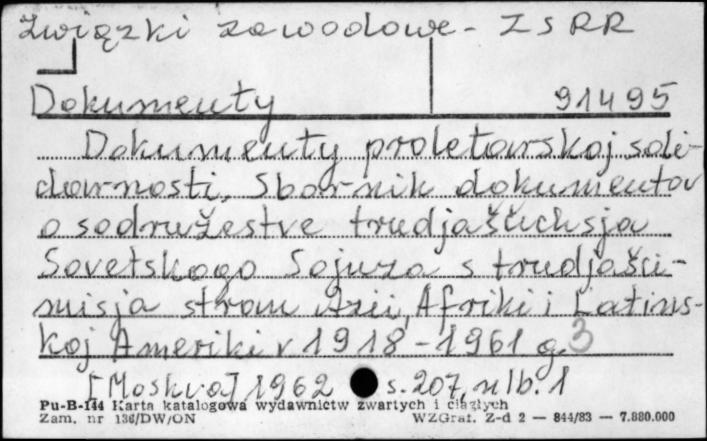 Związki zawodowe - ZSRR
Dokumenty 91495
Dokumenty proletarskoj soli-
darnosti. Sbornik dokumentov
o sodružestve trudjaščichsja
Sovetskogo Sojuza s trudjašči-
misja stran Azii, Afriki i Latins-
koj Ameriki v 1918-1961 g. 3
[Moskva] 1962 s. 207, nlb. 1
Pu-B-144 Karta katalogowa wydawnictw zwartych i ciągłych
Zam. nr 136/DW/ON WZGraf. Z-d 2 — 844/83 — 7.880.000